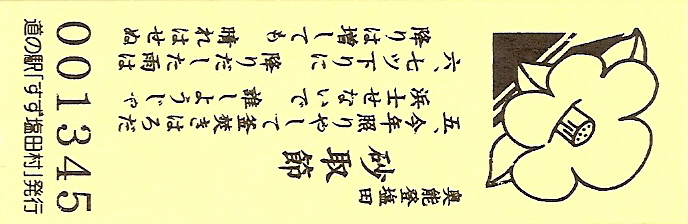 奥能登塩田
砂取節
五、今年照りやして釜焚きはろだ
浜士せないで 誰しようじゃ
六、七ツ下りに 降りだした雨は
降りは増しても 晴れはせぬ
001345
道の駅「すず塩田村」発行